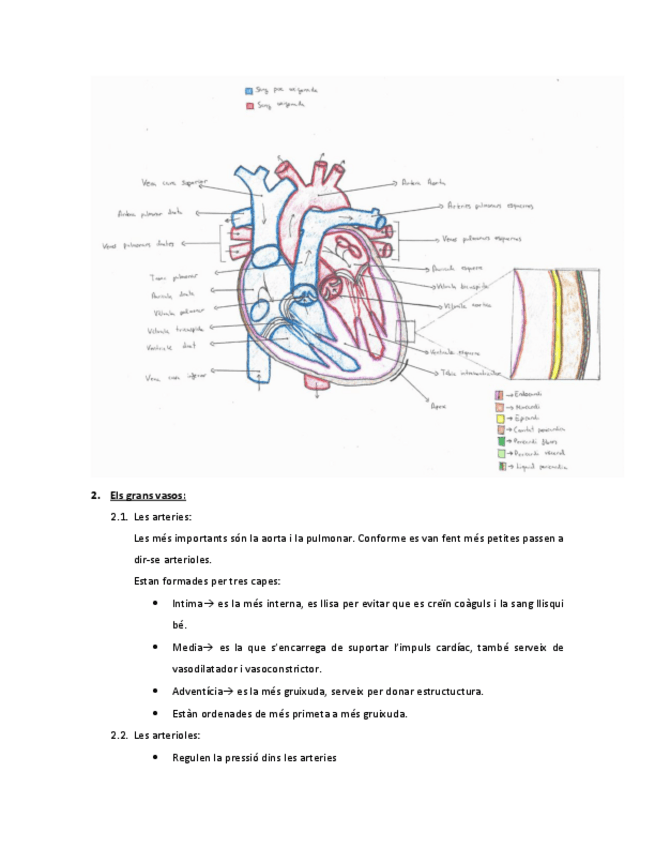 Sang poc oxigenada
Sang oxigenada
Vena cava superior
Artèria Aorta
Artèria pulmonar dreta
Artèries pulmonars esquerres
Venes pulmonars dretes
Venes pulmonars esquerres
Tronc pulmonar
Aurícula esquerra
Aurícula dreta
Vàlvula bicúspide
Vàlvula pulmonar
Vàlvula aòrtica
Vàlvula tricúspide
Ventricle dret
Ventricle esquerre
Vena cava inferior
Apex
→ Endocardi
→ Miocardi
→ Epicardi
→ Cavitat pericardica
→ Pericardi fibros
→ Pericardi visceral
→ Liquid pericardic
2. Els grans vasos:
2.1. Les arteries:
Les més importants són la aorta i la pulmonar. Conforme es van fent més petites passen a
dir-se arterioles.
Estan formades per tres capes:
• Intima→ es la més interna, es llisa per evitar que es creïn coàguls i la sang llisqui
bé.
• Media→ es la que s'encarrega de suportar l'impuls cardíac, també serveix de
vasodilatador i vasoconstrictor.
• Adventícia→ es la més gruixuda, serveix per donar estructuctura.
• Estàn ordenades de més primeta a més gruixuda.
2.2. Les arterioles:
• Regulen la pressió dins les arteries